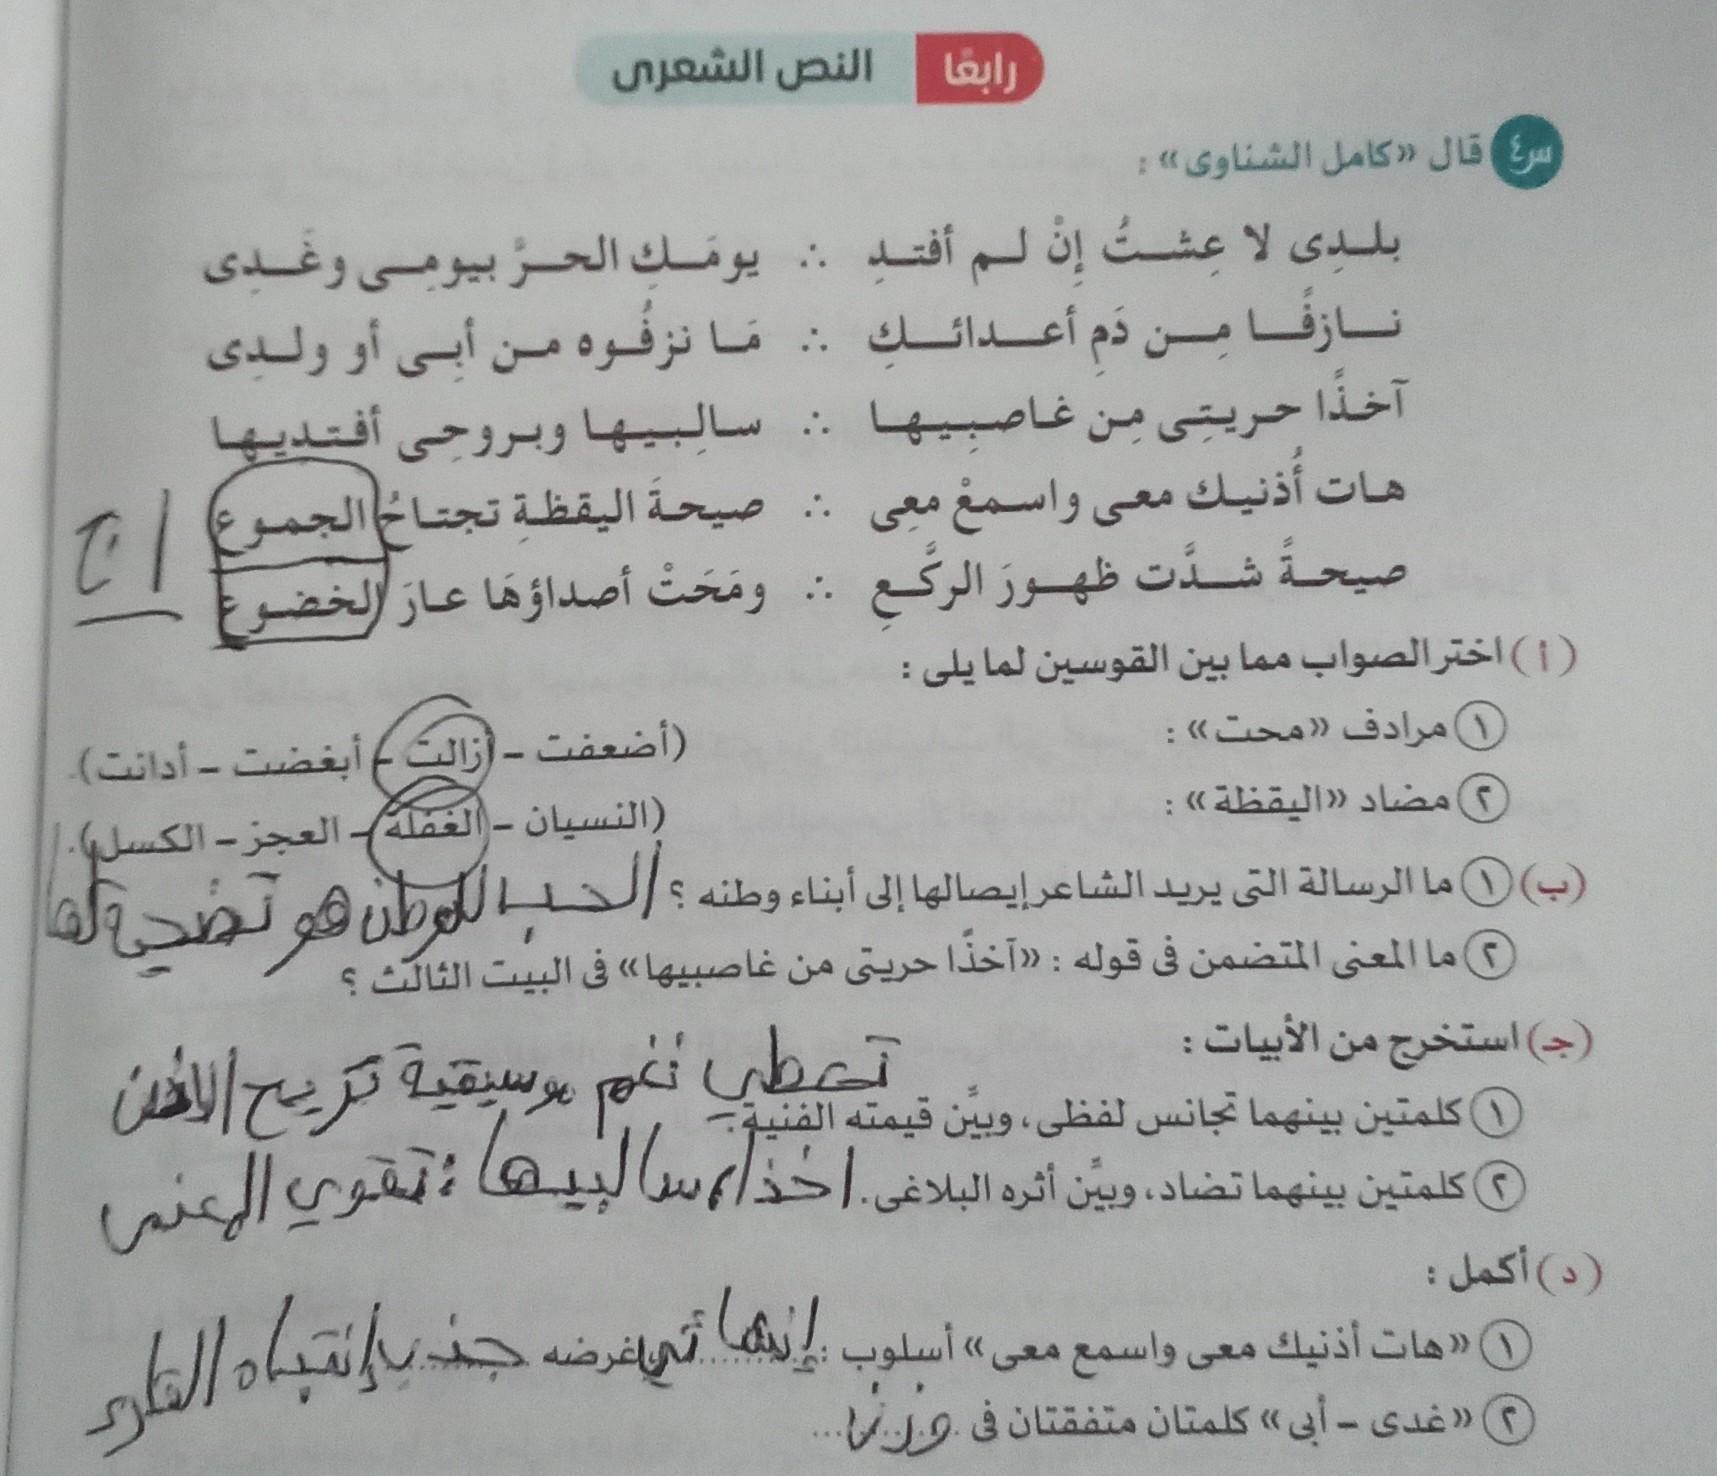 رابعًا النص الشعرى
س٤ قال «كامل الشناوى» :
بلدِى لا عِشتُ إِنْ لم أفتدِ ∴ يومَكِ الحرَّ بيومِى وغَدِى
نازفًا مِن دَمِ أعدائكِ ∴ مَا نزفُوه من أبِى أو ولدِى
آخذًا حريتِى مِن غاصبِيها ∴ سالِبيها وبروحِى أفتديها
هات أُذنيك معى واسمعْ معِى ∴ صيحةَ اليقظةِ تجتاحُ الجموع
صيحةً شدَّت ظهورَ الركَّعِ ∴ ومَحَتْ أصداؤهَا عارَ الخضوع
ج١
(أ) اختر الصواب مما بين القوسين لما يلى :
١ مرادف «محت» : (أضعفت – أزالت – أبغضت – أدانت).
٢ مضاد «اليقظة» : (النسيان – الغفلة – العجز – الكسل).
(ب) ١ ما الرسالة التى يريد الشاعر إيصالها إلى أبناء وطنه ؟ الحب للوطن هو تضحية لها
٢ ما المعنى المتضمن فى قوله : «آخذًا حريتى من غاصبيها» فى البيت الثالث ؟
(جـ) استخرج من الأبيات :
تعطي نغم موسيقية تريح الاذن
١ كلمتين بينهما تجانس لفظى، وبيِّن قيمته الفنية.
٢ كلمتين بينهما تضاد، وبيِّن أثره البلاغى. اخذا، سالبيها : تقوي المعنى
(د) أكمل :
١ «هات أذنيك معى واسمع معى» أسلوب : إنشائي غرضه جذب إنتباه القارئ
٢ «غدى – أبى» كلمتان متفقتان فى